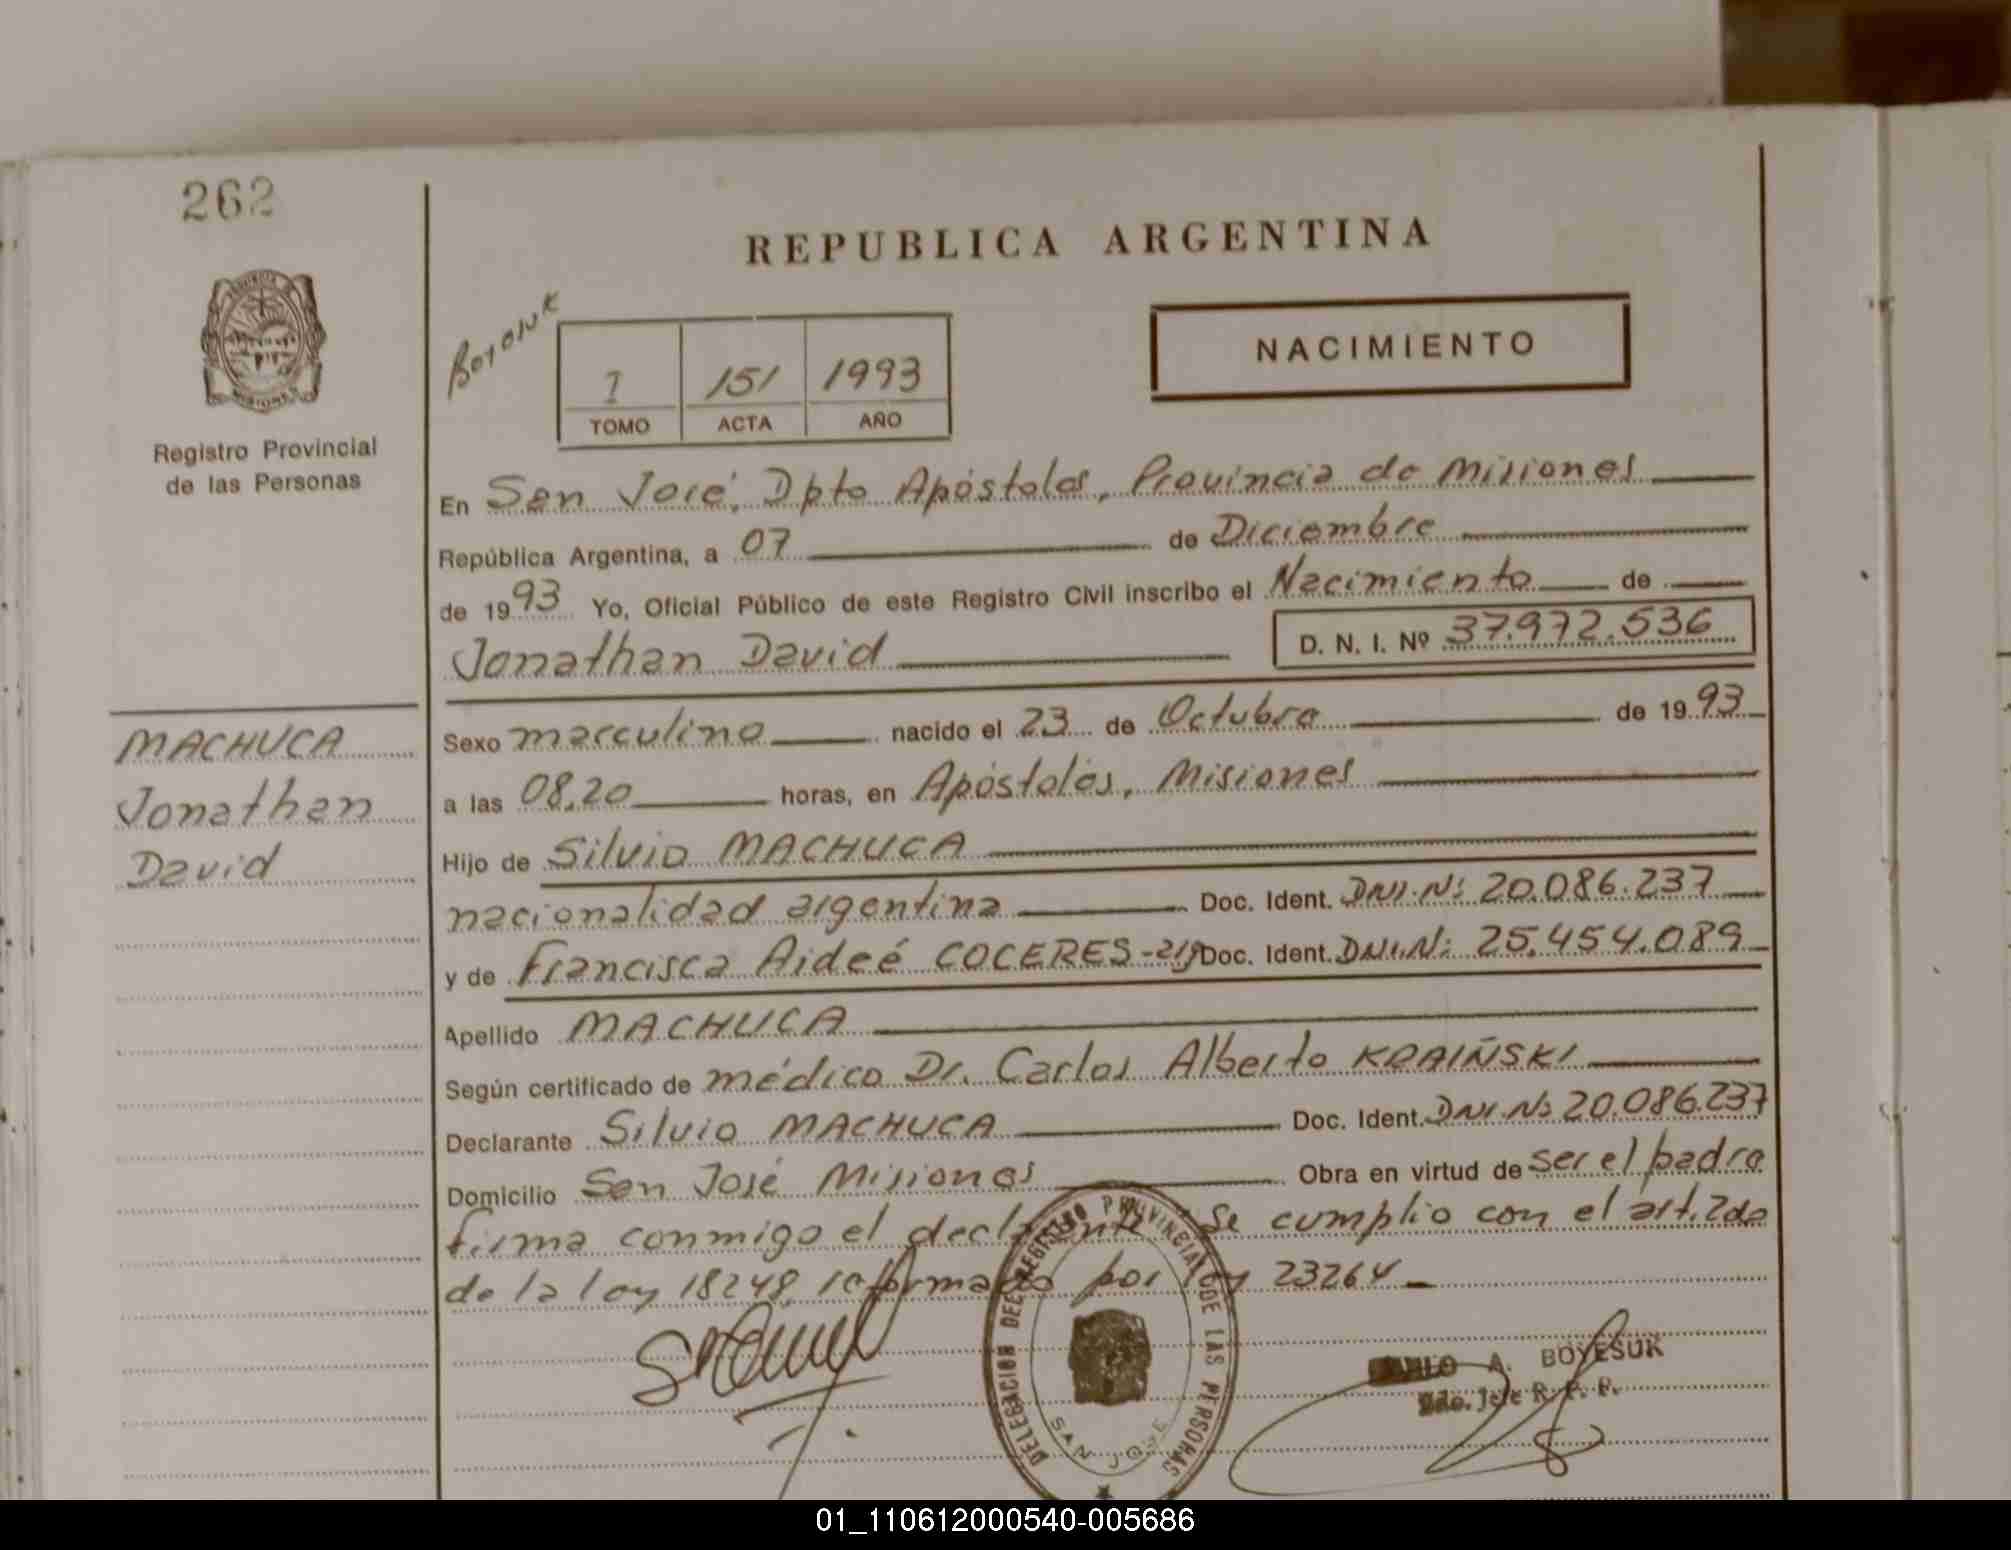 262
REPUBLICA ARGENTINA
Boyesuk
NACIMIENTO
1 151 1993
TOMO ACTA AÑO
Registro Provincial
de las Personas
En San José, Dpto Apóstoles, Provincia de Misiones
República Argentina, a 07 de Diciembre
de 1993 Yo, Oficial Público de este Registro Civil inscribo el Nacimiento de
Jonathan David D. N. I. Nº 37.972.536
MACHUCA
Jonathan
David
Sexo masculino nacido el 23 de Octubre de 1993
a las 08,20 horas, en Apóstoles, Misiones
Hijo de Silvio MACHUCA
nacionalidad argentina Doc. Ident. DNI.Nº 20.086.237
y de Francisca Aideé COCERES-arg Doc. Ident. DNI.Nº 25.454.089
Apellido MACHUCA
Según certificado de médico Dr. Carlos Alberto KRAIÑSKI
Declarante Silvio MACHUCA Doc. Ident. DNI.Nº 20.086.237
Domicilio San José Misiones Obra en virtud de ser el padre
firma conmigo el declarante Se cumplio con el art. 2do
de la ley 18248, reformado por ley 23264
DELEGACION DEL REGISTRO PROVINCIAL DE LAS PERSONAS
SAN JOSE
A. BOYESUK
Jefe R. P. P.
01_110612000540-005686